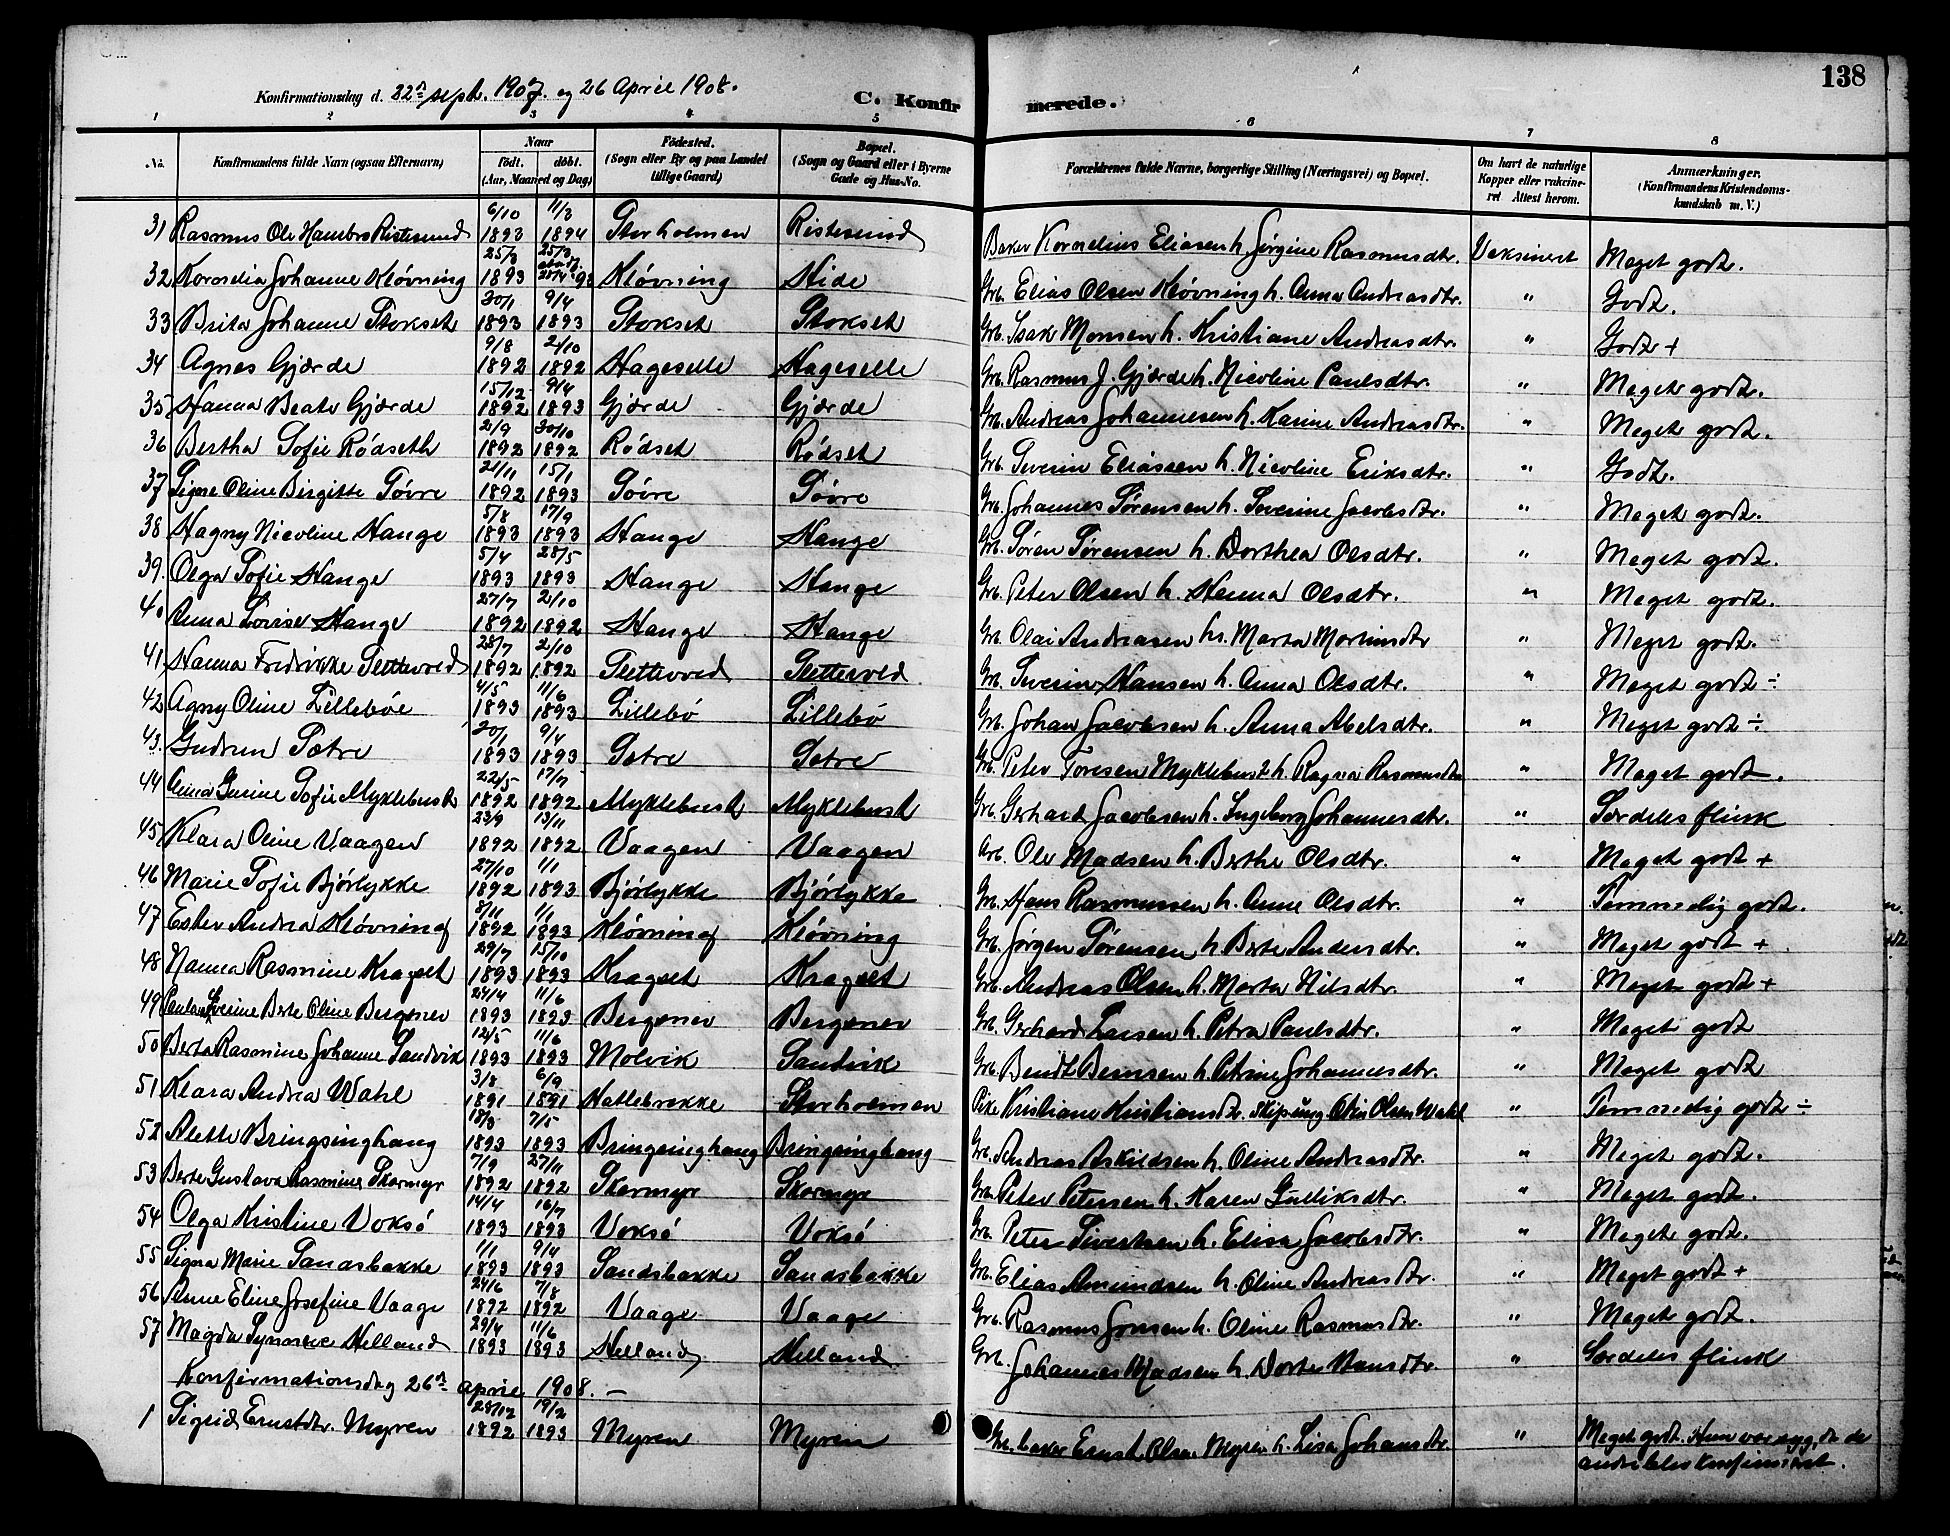 138
Konfirmationsdag d. 22n sept. 1907. og 26 April 1908.
C. Konfirmerede.
1 2 3 4 5 6 7 8
No. Konfirmandens fulde Navn (ogsaa Efternavn) Naar født. døbt. (Aar, Maaned og Dag) Fødested. (Sogn eller By og paa Landet tillige Gaard) Bopæl. (Sogn og Gaard eller i Byerne Gade og Hus-No. Forældrenes fulde Navne, borgerlige Stilling (Næringsvei) og Bopæl. Om havt de naturlige Kopper eller vakcineret Attest herom. Anmærkninger. (Konfirmandens Kristendomskundskab m. V.)
31 Rasmus Ole Ristesund 6/10 1893 11/3 1894 Storholmen Ristesund Baker Kornelius Eliasen h. Jørgine Rasmusdtr. Vaksinert Meget godt.
32 Kornelia Johanne Kløvning 25/3 1893 Kløvning Hide Grb. Elias Olsen Kløvning h. Anna Andreasdtr. " Godt.
33 Brita Johanne Stokset 30/1 1893 9/4 1893 Stokset Stokset Grb. Isak Monsen h. Kristiane Andreasdtr. " Godt +
34 Agnes Gjærde 9/8 1892 2/10 1892 Hageselle Hageselle Grb. Rasmus J. Gjærde h. Nicoline Paulsdtr. " Meget godt.
35 Hanna Beate Gjærde 15/12 1892 9/4 1893 Gjærde Gjærde Grb. Andreas Johannesen h. Karine Andreasdtr. " Meget godt.
36 Bertha Sofie Rødseth 2/9 1892 30/10 1892 Rødset Rødset Grb. Severin Eliassen h. Nicoline Eriksdtr. " Godt.
37 Signe Oline Birgitte Søvre 21/11 1892 15/1 1893 Søvre Søvre Grb. Johannes Sørensen h. Severine Jacobsdtr. " Meget godt.
38 Hagny Nicoline Hange 5/8 1893 17/9 1893 Hange Hange Grb. Søren Sørensen h. Dorthea Olsdtr. " Meget godt.
39. Olga Sofie Hange 5/4 1893 28/5 1893 Hange Hange Grb. Peter Olsen h. Hanna Olsdtr. " Meget godt.
40 Anna Lovise Hange 27/7 1892 2/10 1892 Hange Hange Grb. Olai Andreasen h. Marta Martinsdtr " Meget godt.
41 Hanna Fredrikke Slettevold 28/7 1892 2/10 1892 Slettevold Slettevold Grb. Severin Hansen h. Anna Olsdtr. " Meget godt ÷
42 Agny Oline Lillebøe 4/5 1893 11/6 1893 Lillebø Lillebø Grb. Johan Jacobsen h. Anna Abelsdtr. " Meget godt ÷
43. Gudrun Sætre 20/1 1893 9/4 1893 Setre Setre Grb. Peter Toresen Myklebust h. Ragna Rasmusdtr " Meget godt.
44 Anna Gurine Sofie Myklebust 22/5 1892 17/7 1892 Myklebust Myklebust Grb. Gerhard Jacobsen h. Ingeborg Johannesdtr. " Særdeles flink
45 Klara Oline Vaagen 23/9 1892 13/11 1892 Vaagen Vaagen Arb. Ole Madsen h. Berthe Olsdtr. " Meget godt +
46 Marie Sofie Bjørlykke 27/10 1892 1/1 1893 Bjørlykke Bjørlykke Grb. Hans Rasmussen h. Anne Olsdtr. " Temmelig godt.
47 Ester Andrea Kløvning 8/11 1892 1/1 1893 Kløvning Kløvning Grb. Jørgen Sørensen h. Berte Andersdtr. " Meget godt +
48 Nanna Rasmine Kragset 29/7 1893 15/10 1893 Kragset Kragset Grb. Andreas Olsen h. Marta Nilsdtr. " Meget godt +
49 Paula Severine Berte Oline Bergsnev 24/4 1893 11/6 1893 Bergsnev Bergsnev Grb. Gerhard Larsen h. Petra Paulsdtr. " Meget godt
50 Berta Rasmine Johanne Sandvik 12/5 1893 11/6 1893 Molvik Sandvik Grb. Bendt Berntsen h. Petrine Johannesdtr. " Meget godt
51 Klara Andrea Wahl 3/8 1891 6/9 1891 Hatlebrekke Storholmen Pike Kristiane Kristiansdtr. Skipsung. Olin Olsen Wahl " Temmelig godt ÷
52 Alette Bringsinghaug 18/3 1893 7/5 1893 Bringsinghaug Bringsinghaug Grb. Andreas Askildsen h. Oline Andreasdtr. " Meget godt.
53 Berte Gustava Rasmine Skormyr 7/9 1892 27/11 1892 Skormyr Skormyr Grb. Peter Petersen h. Karen Gulliksdtr. " Meget godt.
54 Olga Kristine Voksø 14/4 1893 16/7 1893 Voksø Voksø Grb. Peter Sivertsen h. Elisa Jacobsdtr. " Meget godt.
55 Signa Marie Sandsbakke 1/1 1893 9/4 1893 Sandsbakke Sandsbakke Grb. Elias Amundsen h. Oline Andreasdtr. " Meget godt +
56 Anne Eline Josefine Vaage 24/6 1892 7/8 1892 Vaage Vaage Grb. Rasmus Jonsen h. Oline Rasmusdtr. " Meget godt.
57 Magda Synneve Helland 29/4 1893 11/6 1893 Helland Helland Grb. Johannes Madsen h. Dorte Hansdtr. " Særdeles flink
Konfirmationsdag 26n april 1908. —
1 Sigrid Ernstdtr. Myren 28/12 1892 19/2 1893 Myren Myren baker Ernst Olsen Myren h. Lisa Johansdtr. " Meget godt. Hun var syg, da de
andre blev konfirmeret.